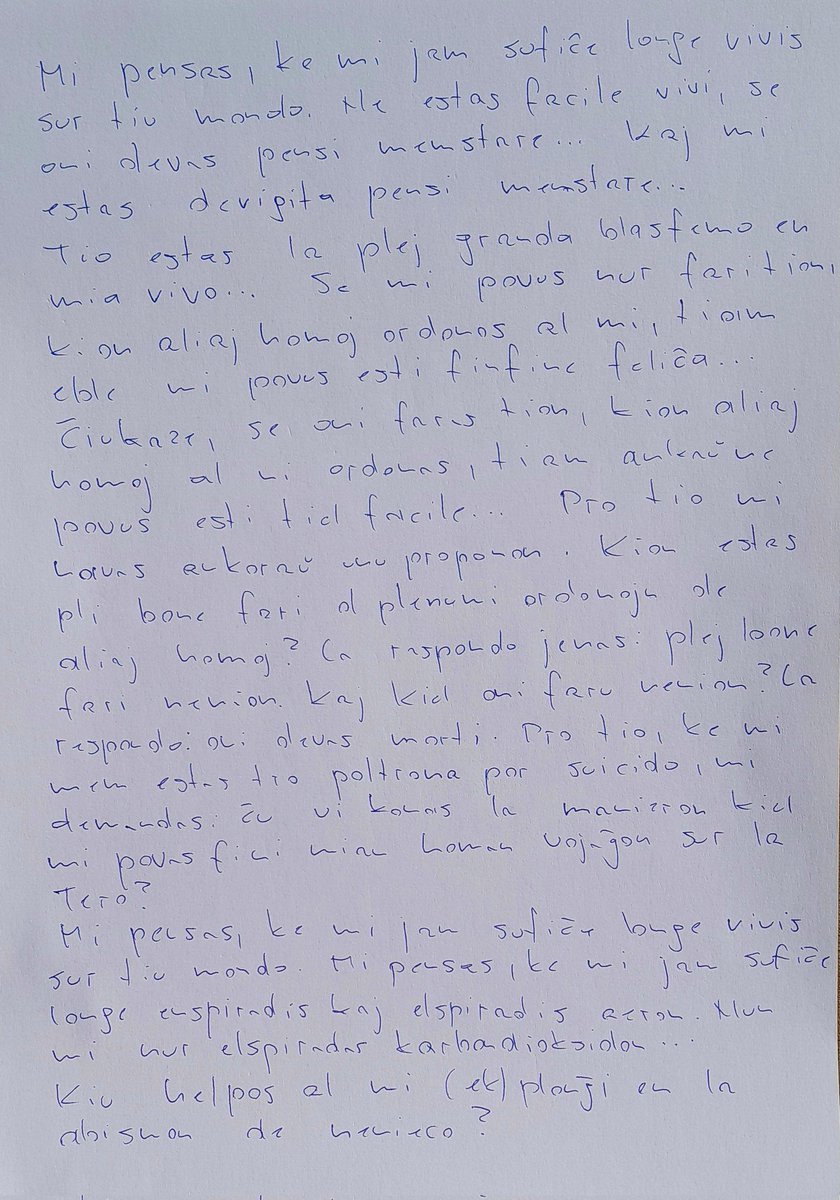 Mi pensas, ke mi jam sufiĉe longe vivis
sur tiu mondo. Ne estas facile vivi, se
oni devas pensi memstare... Kaj mi
estas devigita pensi memstare...
Tio estas la plej granda blasfemo en
mia vivo... Se mi povus nur fari tion,
kion aliaj homoj ordonos al mi, tiam
eble mi povus esti finfine feliĉa...
Ĉiukaze, se oni faras tion, kion aliaj
homoj al ni ordonas, tiam ankaŭ ne
povus esti tiel facile... Pro tio mi
havas ankoraŭ unu proponon. Kion estas
pli bone fari ol plenumi ordonojn de
aliaj homoj? La respondo jenas: plej bone
fari nenion. Kaj kiel oni faru nenion? La
respondo: oni devas morti. Pro tio, ke mi
mem estas tro poltrona por suicido, mi
demandas: ĉu vi konas la manieron kiel
mi povas fini mian homan vojaĝon sur la
Tero?
Mi pensas, ke mi jam sufiĉe longe vivis
sur tiu mondo. Mi pensas, ke mi jam sufiĉe
longe enspiradis kaj elspiradis aeron. Nun
mi nur elspiradas karbondioksidon...
Kiu helpos al mi (ek)plonĝi en la
abismon de nenieco?